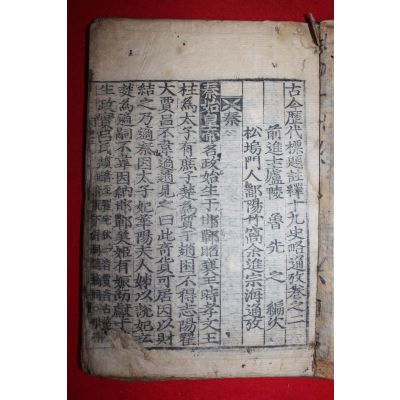 古今歷代標題註釋十九史略通攷卷之二
前進士廬陵 曾 先 之 編次
松塢門人鄱陽竹窩余進宗海通攷
秦
秦始皇帝名政始生于邯鄲昭襄王時孝文王
柱爲太子有庶子楚爲質于趙困不得志陽翟
大賈呂不韋適趙見之曰此奇貨可居因以財
結之乃適秦因太子妃華陽夫人姊以說妃立
楚爲適嗣不韋因納邯鄲美姬有娠而獻于
生政